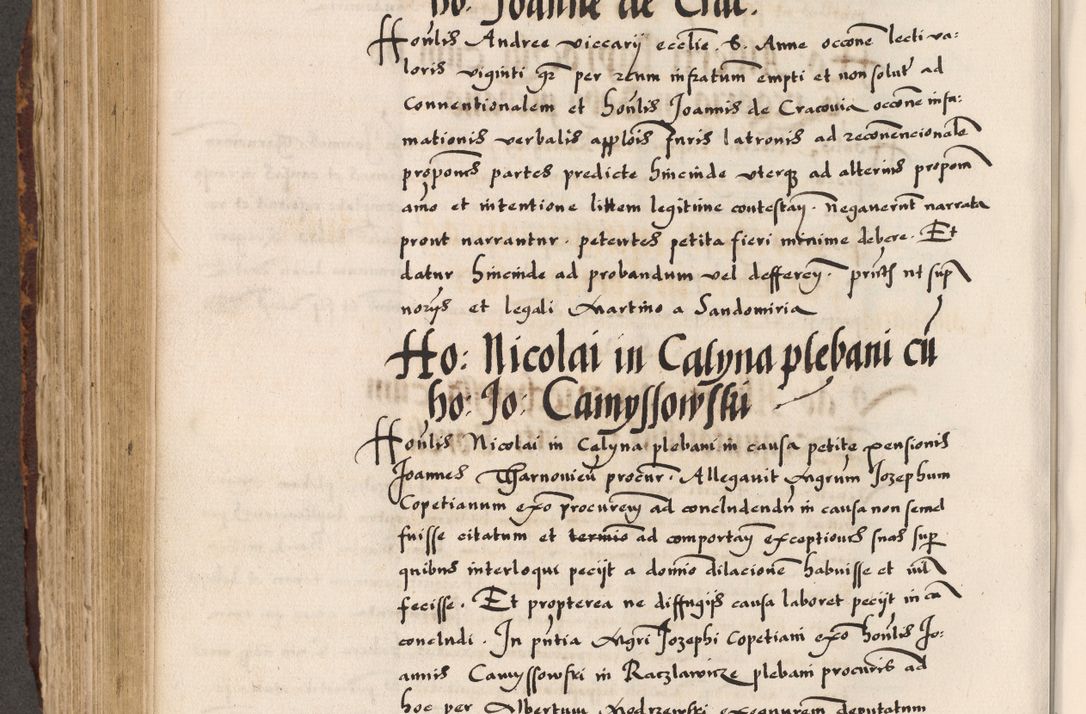 ho: Joanne de Crac:
Honlis Andree viccarij ecclie. S. Anne occone lecti va:
loris viginti gr per reum infratum empti et non solut ad
Conventionalem et honlis Joannis de Cracovia occone infa:
mationis verbalis applois furis latronis ad reconencionale
propones partes predicte hincinde uterq ad alterius propom
amo et intentione littem legitime contestaŋ. Negaverunt narrata
prout narrantur. petentes petita fieri minime debere. Et
datur hincinde ad probandum vel deffereŋ. pritis ut sup
norijs et legali Martino a Sandomiria
Ho: Nicolai in Calyna plebani cu
ho: Jo: Camyssowski
Honlis Nicolai in Calyna plebani in causa petite pensionis
Joannes Tharnovieu procur. Allegavit Mgrum Jozephum
Copetianum exo procureŋ ad concludendu in causa non semel
fuisse citatum et termio ad comportaŋ exceptiones suas sup
quibus interloqui pecijt a domio dilacione habuisse et nil
fecisse. Et propterea ne diffugijs causa laboret pecijt in ca
concludi. In pntia Mgri Jozephi Copetiani exo honlis Jo:
annis Camyssowski in Raczlawicze plebani procuris ad
hoc per Albertum Modrzewski exequurem deputatum